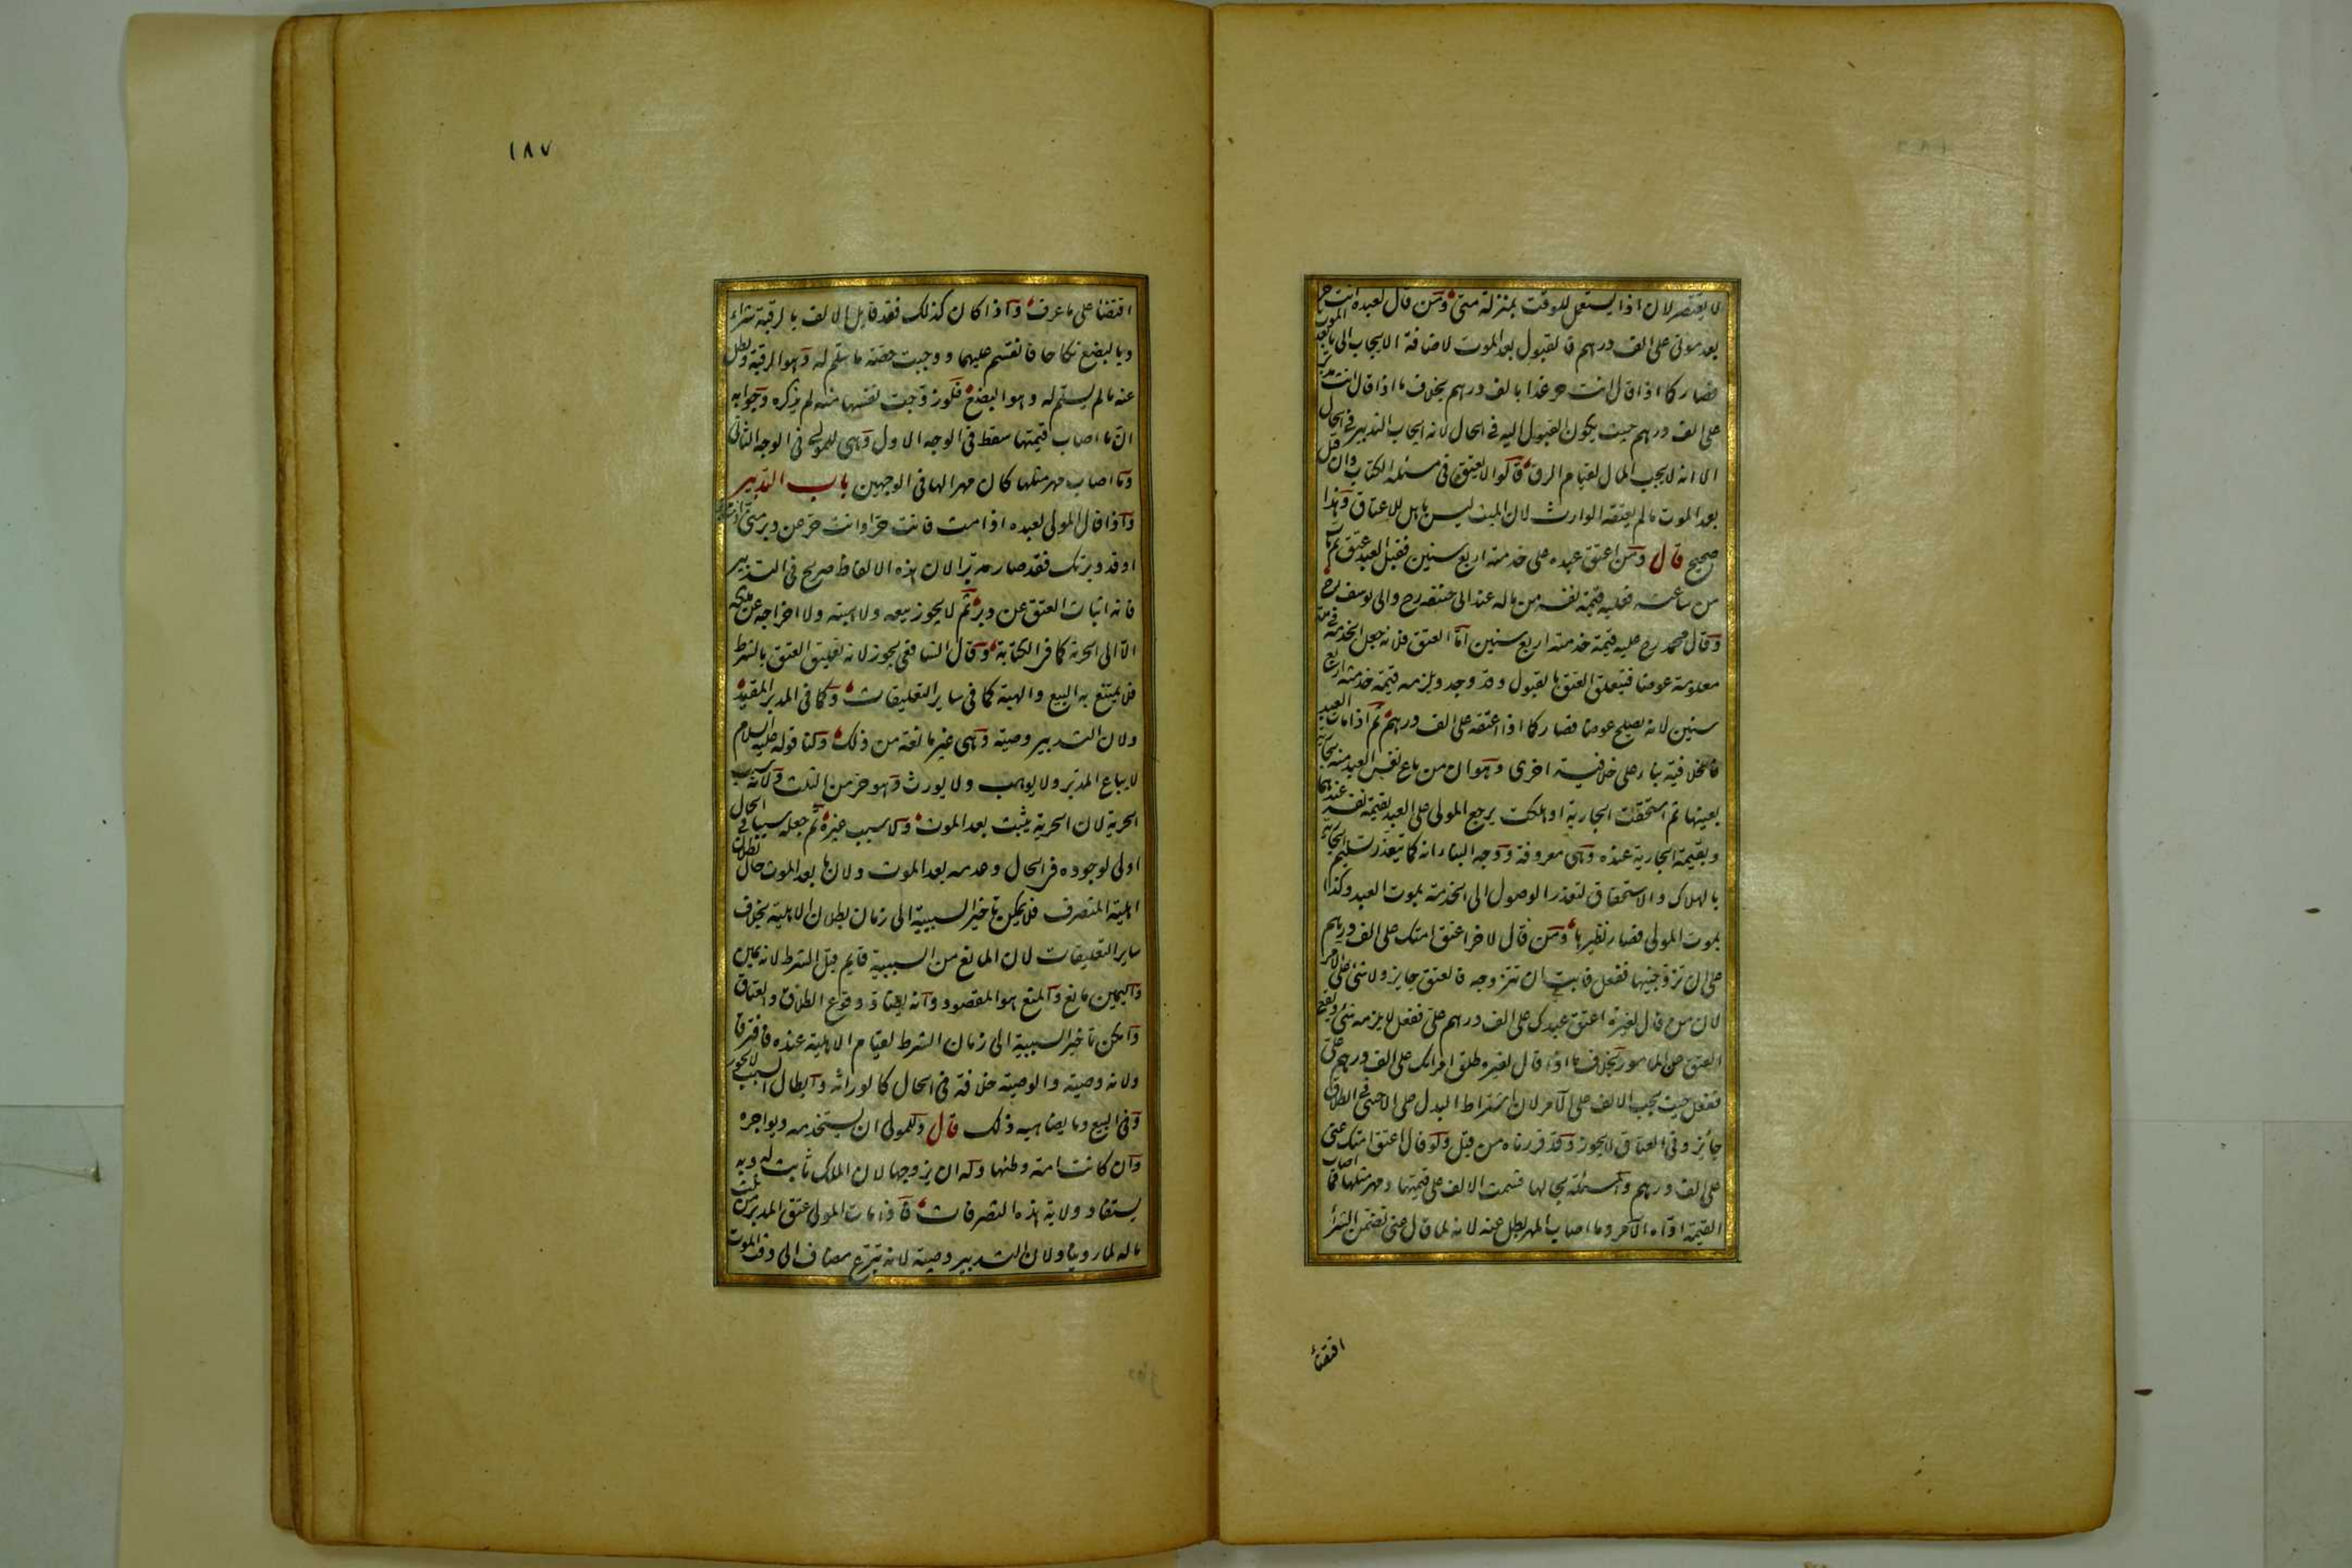 لا يقتصر لان اذا يستعمل للوقت بمنزلة متى ومن قال لعبده انت حر
بعد موتى على الف درهم فالقبول بعد الموت لاضافة الايجاب الى ما بعد الموت
فصار كما اذا قال انت حر غدا بالف درهم بخلاف ما اذا قال انت مدبر
على الف درهم حيث يكون القبول اليه فى الحال لانه ايجاب التدبير فى الحال
الا انه لا يجب المال لقيام الرق قالوا لا يعتق فى مسئلة الكتاب وان قبل
بعد الموت ما لم يعتقه الوارث لان الميت ليس باهل للاعتاق وهذا
صحيح قال ومن اعتق عبده على خدمته اربع سنين فقبل العبد عتق ثم مات
من ساعته فعليه قيمة نفسه من ماله عند ابى حنيفه رح وابى يوسف رح
وقال محمد رح عليه قيمة خدمته اربع سنين اما العتق فلانه جعل الخدمة فى مدة
معلومة عوضا فيتعلق العتق بالقبول وقد وجد ويلزمه قيمة خدمته اربع
سنين لانه يصلح عوضا فصار كما اذا اعتقه على الف درهم ثم اذا مات العبد
فالخلافية بناء على خلافية اخرى وهو ان من باع نفس العبد منه بجارية
بعينها ثم استحقت الجارية او هلكت يرجع المولى على العبد بقيمة نفسه عندهما
وبقيمة الجارية عنده وهى معروفة ووجه البناء انه كما يتعذر تسليم الجارية
بالهلاك والاستحقاق لتعذر الوصول الى الخدمة بموت العبد وكذا
بموت المولى فصار نظيرها ومن قال لاخر اعتق امتك على الف درهم
على ان تزوجنيها ففعل فابت ان تتزوجه فالعتق جايز ولا شئ على الامر
لان من قال لغيره اعتق عبدك على الف درهم على ففعل لا يلزمه شئ ويقع
العتق عن المامور بخلاف ما اذا قال لغيره طلق امراتك على الف درهم على
ففعل حيث يجب الالف على الآمر لان اشتراط البدل على الاجنبى فى الطلاق
جائز وفى العتاق لا يجوز وقد قررناه من قبل ولو قال اعتق امتك عنى
على الف درهم والمسئلة بحالها قسمت الالف على قيمتها ومهر مثلها فما اصاب
القيمة اداه الآمر وما اصاب المهر بطل عنه لانه لما قال عنى تضمن الشراء
اقتضاء
١٨٧
اقتضاء على ما عرف واذا كان كذلك فقد قابل الالف بالرقبة شراء
وبالبضع نكاحا فانقسم عليهما ووجبت حصة ما سلم له وهو الرقبة وبطل
عنه ما لم يسلم له وهو البضع فلو زوجت نفسها منه لم يذكره وجوابه
ان ما اصاب قيمتها سقط فى الوجه الاول وهى للمولى فى الوجه الثانى
وما اصاب مهر مثلها كان مهرا لها فى الوجهين باب التدبير
واذا قال المولى لعبده اذا مت فانت حر او انت حر عن دبر منى او انت مدبر
او قد دبرتك فقد صار مدبرا لان هذه الالفاظ صريح فى التدبير
فانه اثبات العتق عن دبر ثم لا يجوز بيعه ولا هبته ولا اخراجه عن ملكه
الا الى الحرية كما فى الكتابة وقال الشافعى يجوز لانه تعليق العتق بالشرط
فلا يمتنع به البيع والهبة كما فى ساير التعليقات وكما فى المدبر المقيد
ولان التدبير وصية وهى غير مانعة من ذلك ولنا قوله عليه السلام
لا يباع المدبر ولا يوهب ولا يورث وهو حر من الثلث ولانه سبب
الحرية لان الحرية يثبت بعد الموت ولا سبب غيره ثم جعله سببا فى الحال
اولى لوجوده فى الحال وعدمه بعد الموت ولان ما بعد الموت حال بطلان
اهلية المتصرف فلا يمكن تاخير السببية الى زمان بطلان الاهلية بخلاف
ساير التعليقات لان المانع من السببية قايم قبل الشرط لانه يمين
واليمين مانع والمنع هو المقصود وانه يضاد وقوع الطلاق والعتاق
وامكن تاخير السببية الى زمان الشرط لقيام الاهلية عنده فافترقا
ولانه وصية والوصية خلافة فى الحال كالوراثة وابطال السبب لا يجوز
وفى البيع وما يضاهيه ذلك قال وللمولى ان يستخدمه ويواجره
وان كانت امة وطئها وله ان يزوجها لان الملك ثابت له وبه
يستفاد ولاية هذه التصرفات فاذا مات المولى عتق المدبر من ثلث
ماله لما روينا ولان التدبير وصية لانه تبرع مضاف الى وقت الموت